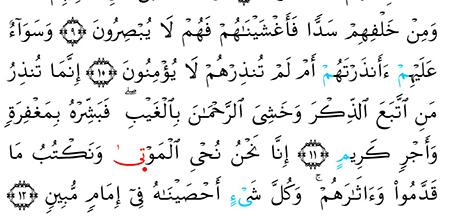 وَمِنْ خَلْفِهِمْ سَدًّا فَأَغْشَيْنَٰهُمْ فَهُمْ لَا يُبْصِرُونَ ۝٩ وَسَوَآءٌ
عَلَيْهِمْ ءَأَنذَرْتَهُمْ أَمْ لَمْ تُنذِرْهُمْ لَا يُؤْمِنُونَ ۝١٠ إِنَّمَا تُنذِرُ
مَنِ ٱتَّبَعَ ٱلذِّكْرَ وَخَشِيَ ٱلرَّحْمَٰنَ بِٱلْغَيْبِ ۖ فَبَشِّرْهُ بِمَغْفِرَةٍ
وَأَجْرٍ كَرِيمٍ ۝١١ إِنَّا نَحْنُ نُحْيِ ٱلْمَوْتَىٰ وَنَكْتُبُ مَا
قَدَّمُوا۟ وَءَاثَٰرَهُمْ ۚ وَكُلَّ شَيْءٍ أَحْصَيْنَٰهُ فِىٓ إِمَامٍ مُّبِينٍ ۝١٢